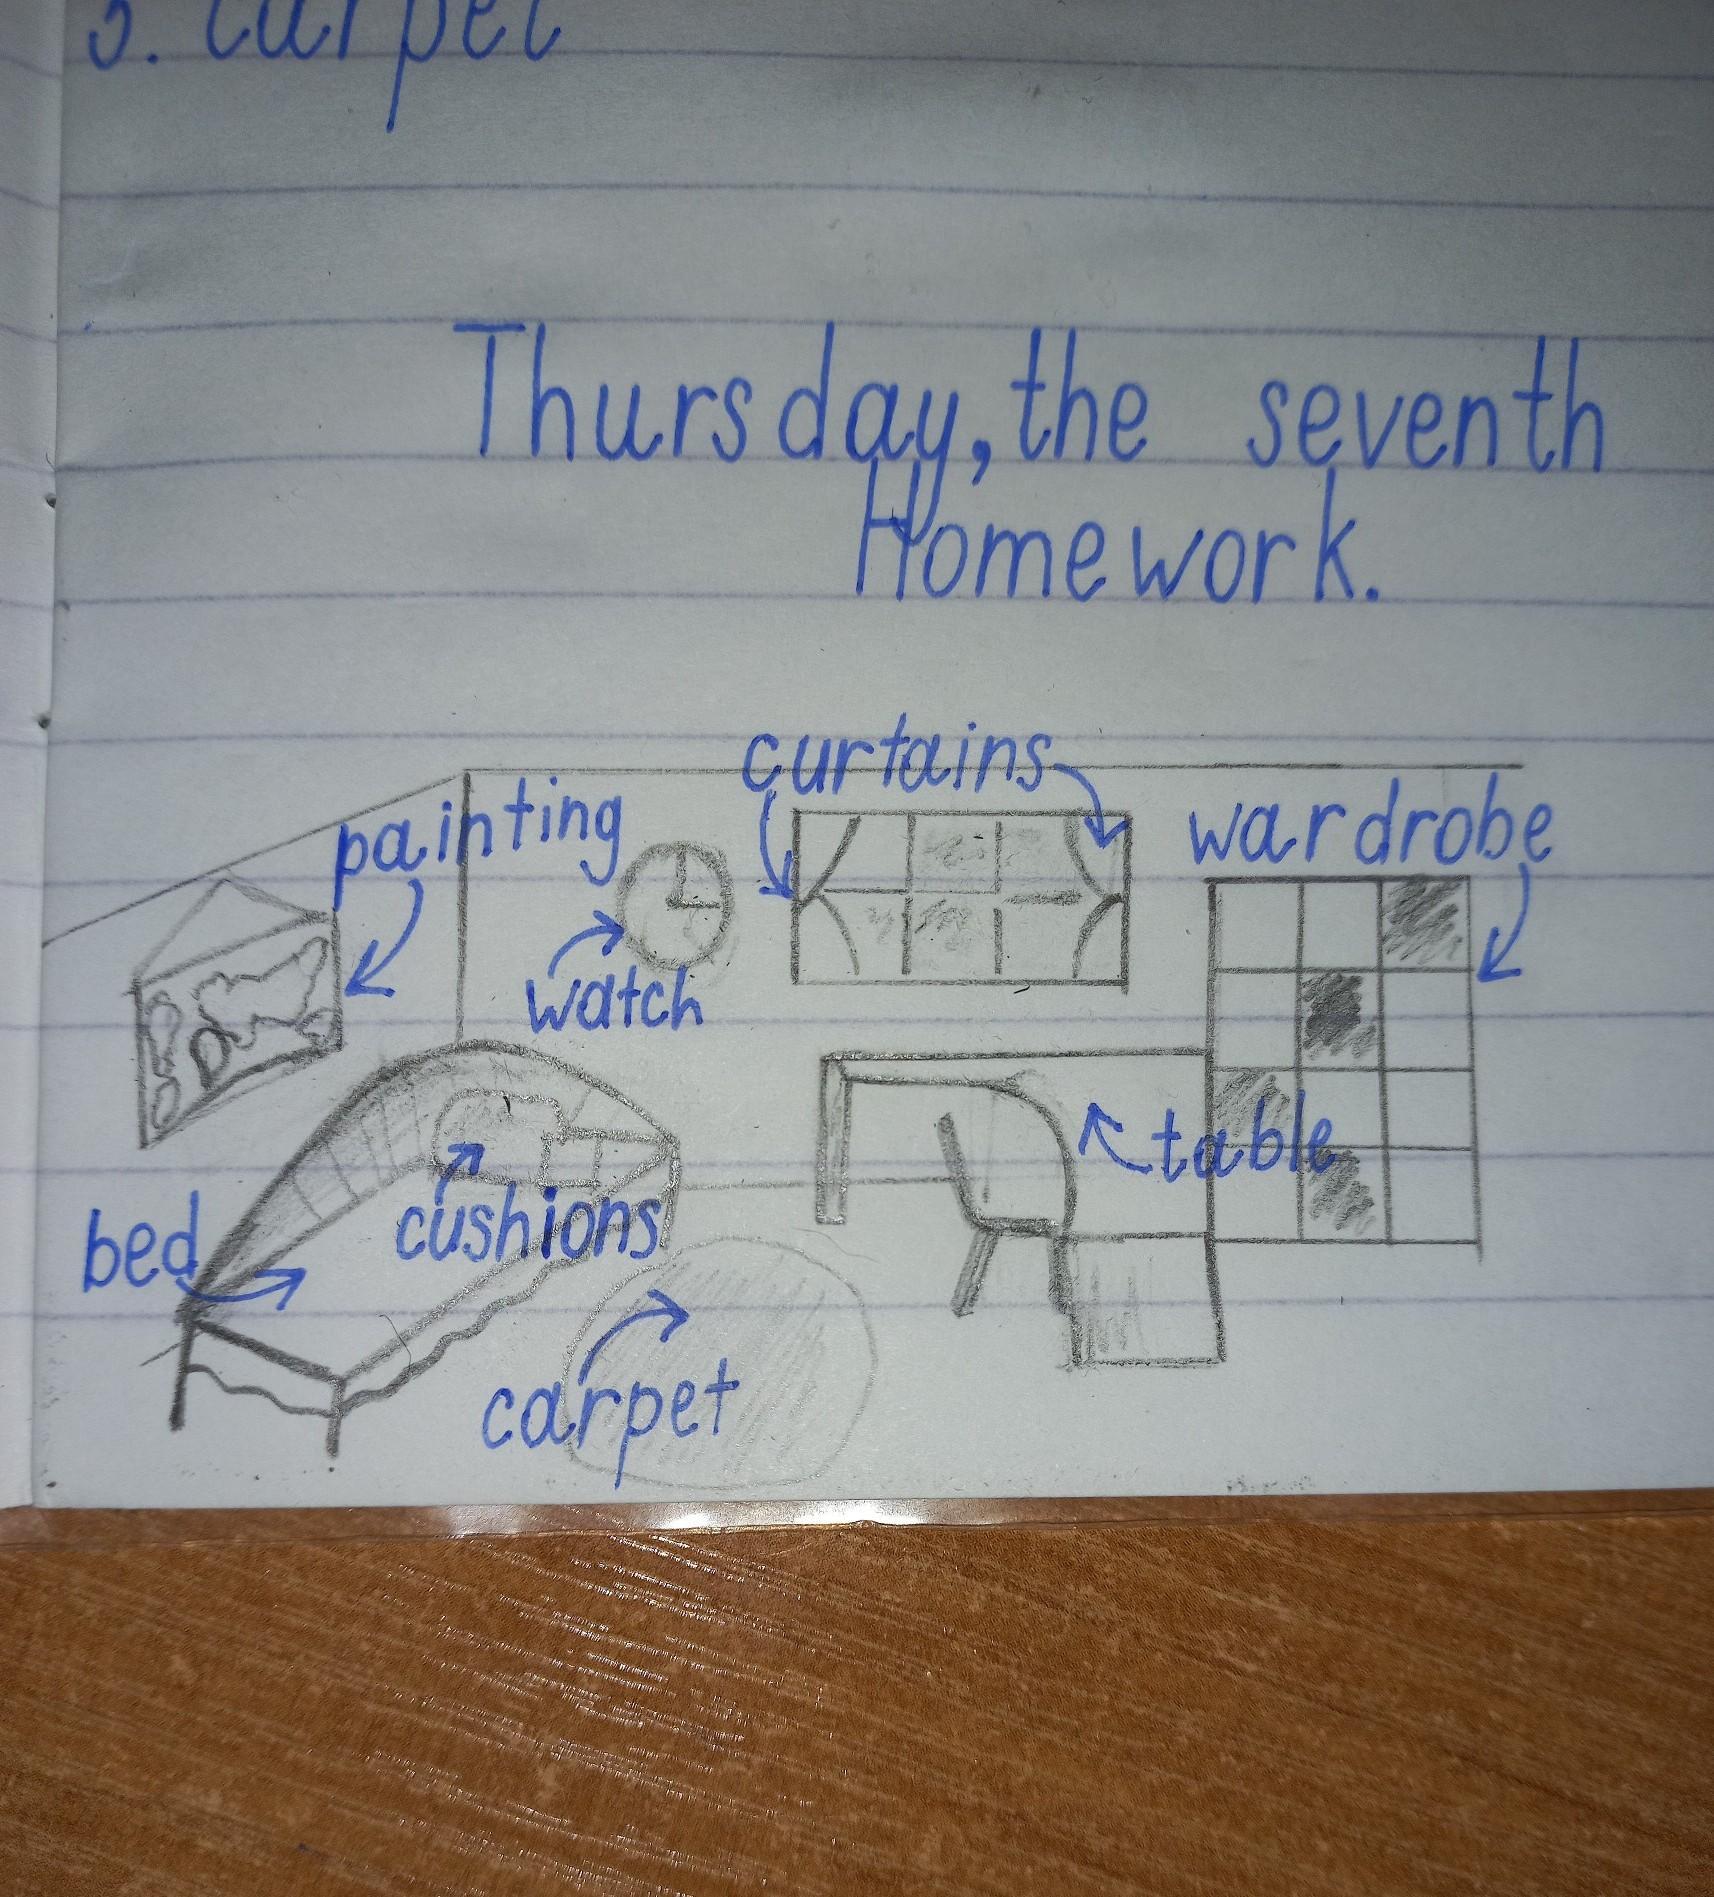 3. carpet
Thursday, the seventh
Homework.
curtains
painting
wardrobe
watch
table
cushions
bed
carpet